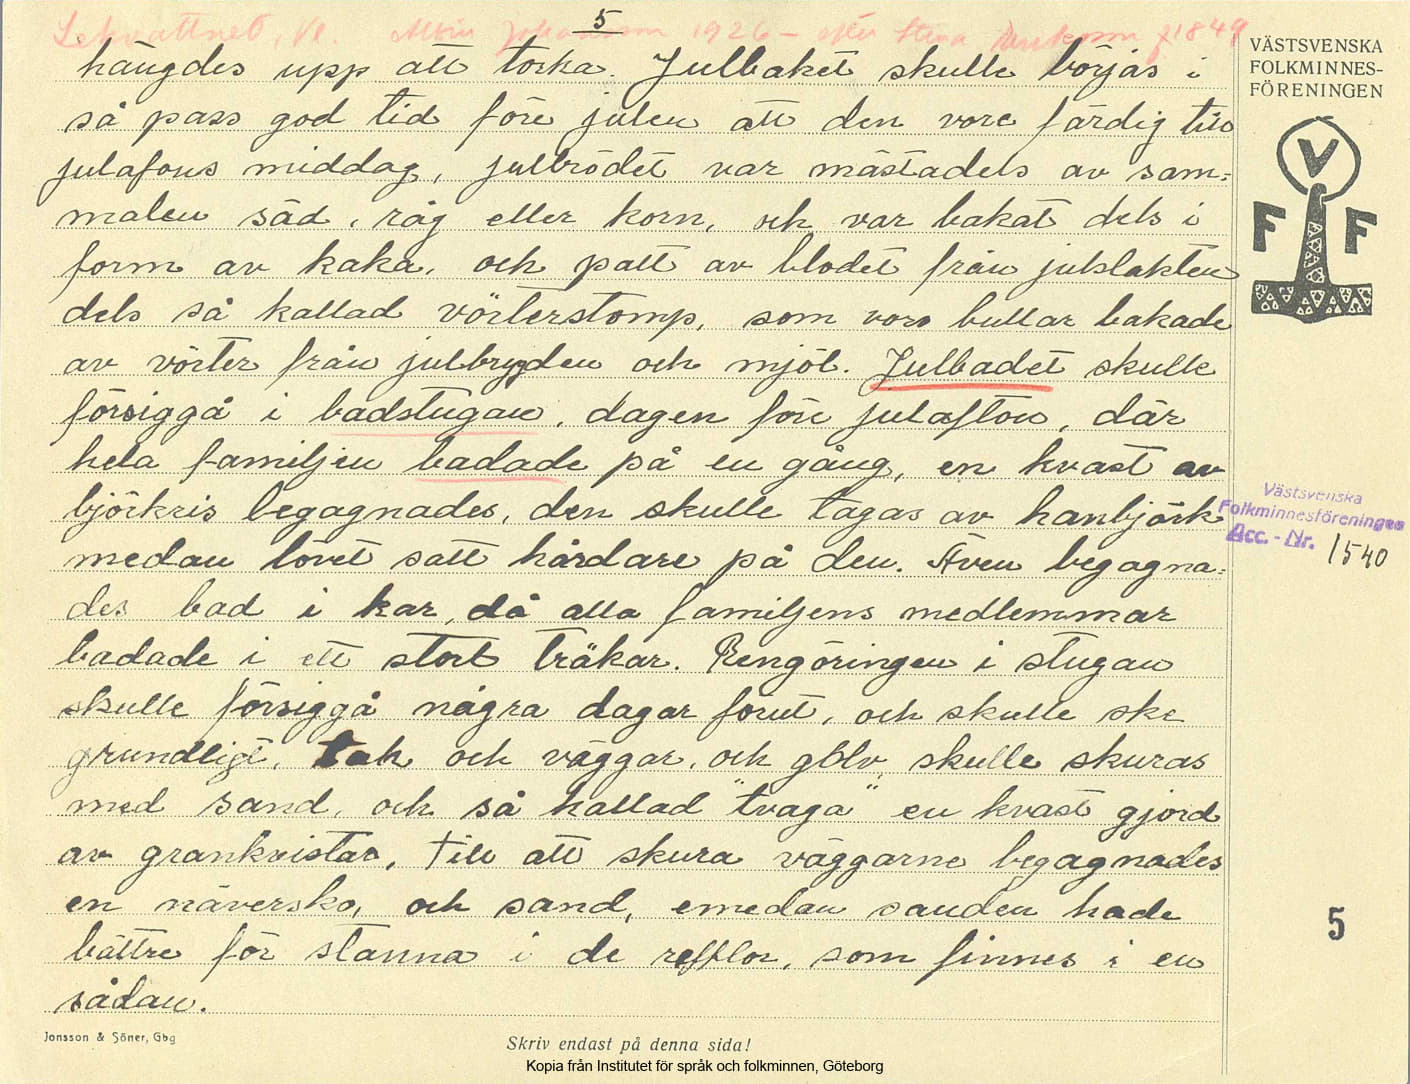 5
Lekvattnet, Vl. Johansson 1926 - efter Stina f 1849
hängdes upp att torka. Julbaket skulle börjas i
så pass god tid före julen att den vore färdig till
julafons middag, julbrödet var mästadels av sam=
malen säd, råg eller korn, och var bakat dels i
form av kaka, och patt av blodet från julslakten
dels så kallad vörterstomp, som voro bullar bakade
av vörter från julbrygden och mjöl. Julbadet skulle
försiggå i badstugan, dagen före julafton, där
hela familjen badade på en gång, en kvast av
björkris begagnades, den skulle tagas av hanbjörk
medan lövet satt hårdare på den. Även begagna=
des bad i kar, då alla familjens medlemmar
badade i ett stort träkar. Rengöringen i stugan
skulle försiggå några dagar förut, och skulle ske
grundligt, tak och väggar, och golv, skulle skuras
med sand, och så kallad "tvaga" en kvast gjord
av grankvistar, till att skura väggarne begagnades
en näversko, och sand, emedan sanden hade
bättre för stanna i de refflor, som finnes i en
sådan.
VÄSTSVENSKA
FOLKMINNES-
FÖRENINGEN
V
F F
Västsvenska
Folkminnesföreningen
Acc.-Nr. 1540
5
Jonsson & Söner, Gbg
Skriv endast på denna sida!
Kopia från Institutet för språk och folkminnen, Göteborg